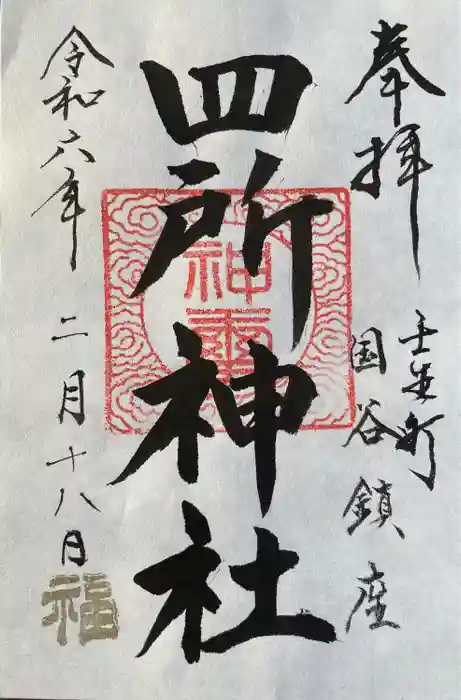 奉拝
壬生町
国谷鎮座
四所神社
神霊
令和六年 二月十八日
福